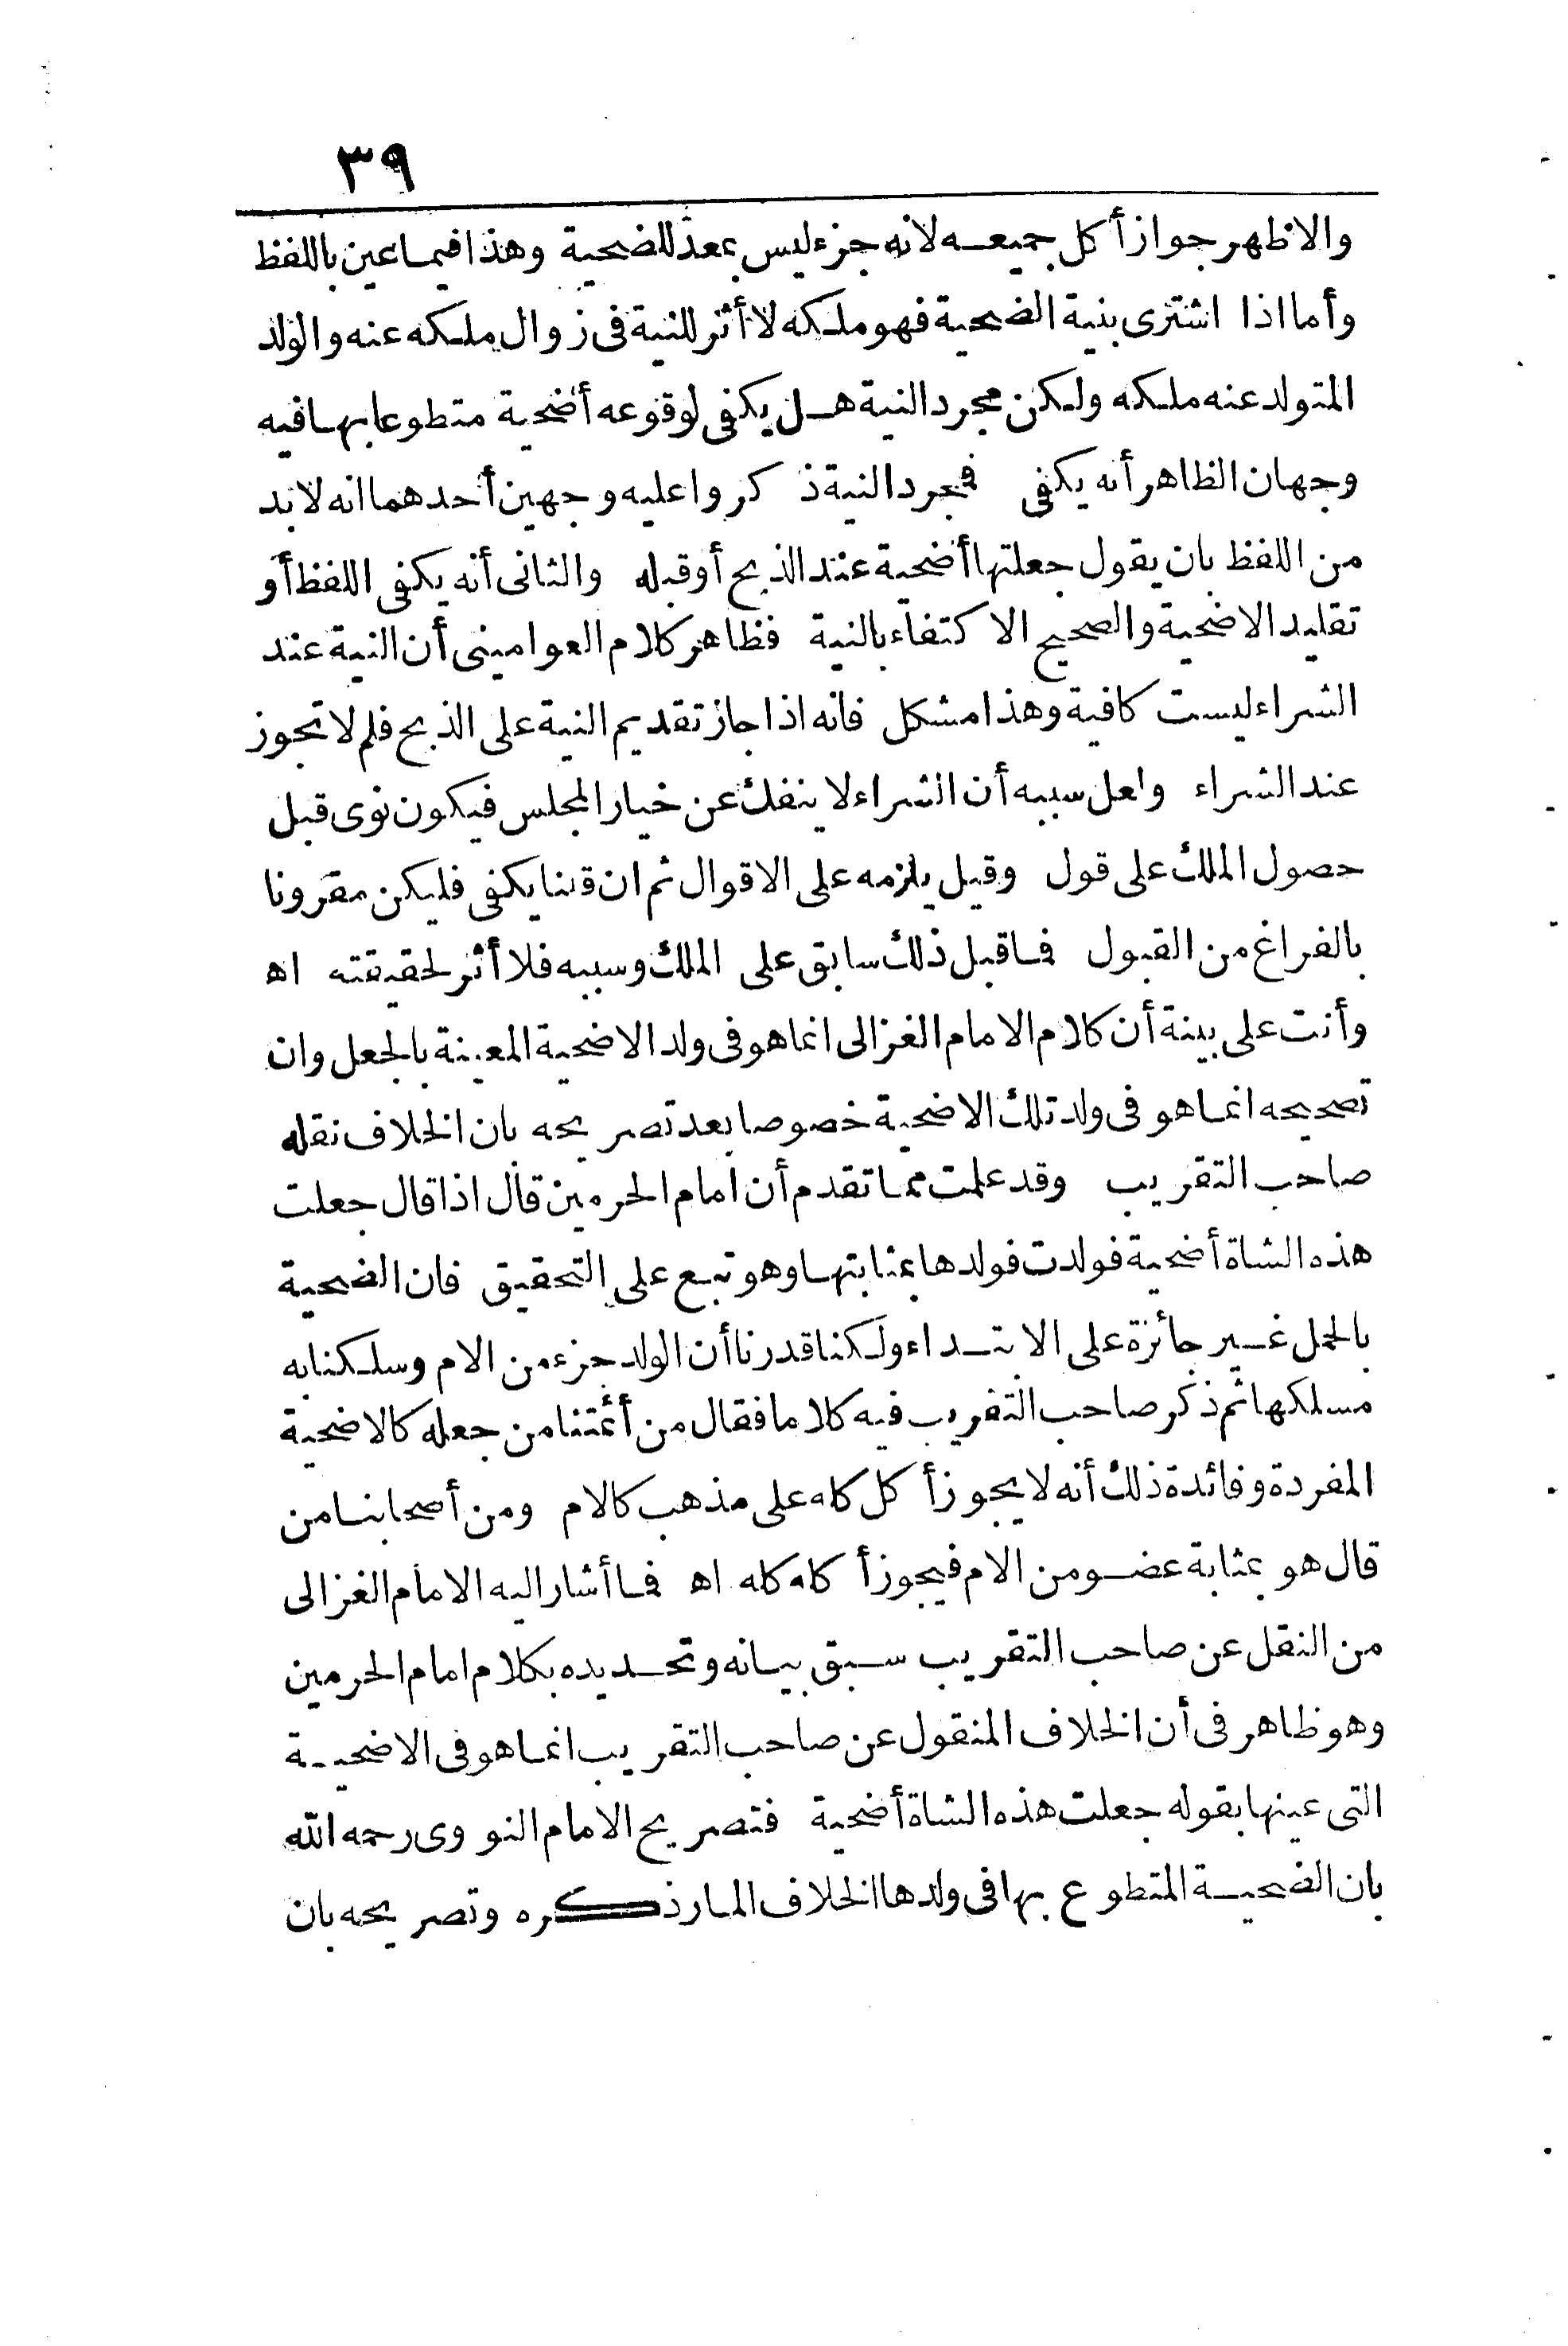 ٣٩
والاظهر جواز أكل جميعه لانه جزء ليس بمعد للضحية وهذا فيما عين باللفظ
وأما اذا اشترى بنية الضحية فهو ملكه لا أثر للنية فى زوال ملكه عنه والولد
المتولد عنه ملكه ولكن مجرد النية هل يكفى لوقوعه أضحية متطوعا بها فيه
وجهان الظاهر أنه يكفى فمجرد النية ذكروا عليه وجهين أحدهما انه لا بد
من اللفظ بان يقول جعلتها أضحية عند الذبح أو قبله والثانى أنه يكفى اللفظ أو
تقليد الاضحية والصحيح الاكتفاء بالنية فظاهر كلام العوامينى أن النية عند
الشراء ليست كافية وهذا مشكل فانه اذا جاز تقديم النية على الذبح فلم لا تجوز
عند الشراء ولعل سببه أن الشراء لا ينفك عن خيار المجلس فيكون نوى قبل
حصول الملك على قول وقيل يلزمه على الاقوال ثم ان قلنا يكفى فليكن مقرونا
بالفراغ من القبول فما قبل ذلك سابق على الملك وسببه فلا أثر لحقيقته اه
وأنت على بينة أن كلام الامام الغزالى انما هو فى ولد الاضحية المعينة بالجعل وان
تصحيحه انما هو فى ولد تلك الاضحية خصوصا بعد تصريحه بان الخلاف نقله
صاحب التقريب وقد علمت مما تقدم أن امام الحرمين قال اذا قال جعلت
هذه الشاة أضحية فولدت فولدها بمثابتها وهو تبع على التحقيق فان الضحية
بالحمل غير جائزة على الابتداء ولكنا قدرنا أن الولد جزء من الام وسلكنا به
مسلكها ثم ذكر صاحب التقريب فيه كلاما فقال من أئمتنا من جعله كالاضحية
المفردة وفائدة ذلك أنه لا يجوز أكل كله على مذهب كالام ومن أصحابنا من
قال هو بمثابة عضو من الام فيجوز أكله كله اه فما أشار اليه الامام الغزالى
من النقل عن صاحب التقريب سبق بيانه وتحديده بكلام امام الحرمين
وهو ظاهر فى أن الخلاف المنقول عن صاحب التقريب انما هو فى الاضحية
التى عينها بقوله جعلت هذه الشاة أضحية فتصريح الامام النووى رحمه الله
بان الضحية المتطوع بها فى ولدها الخلاف المار ذكره وتصريحه بان